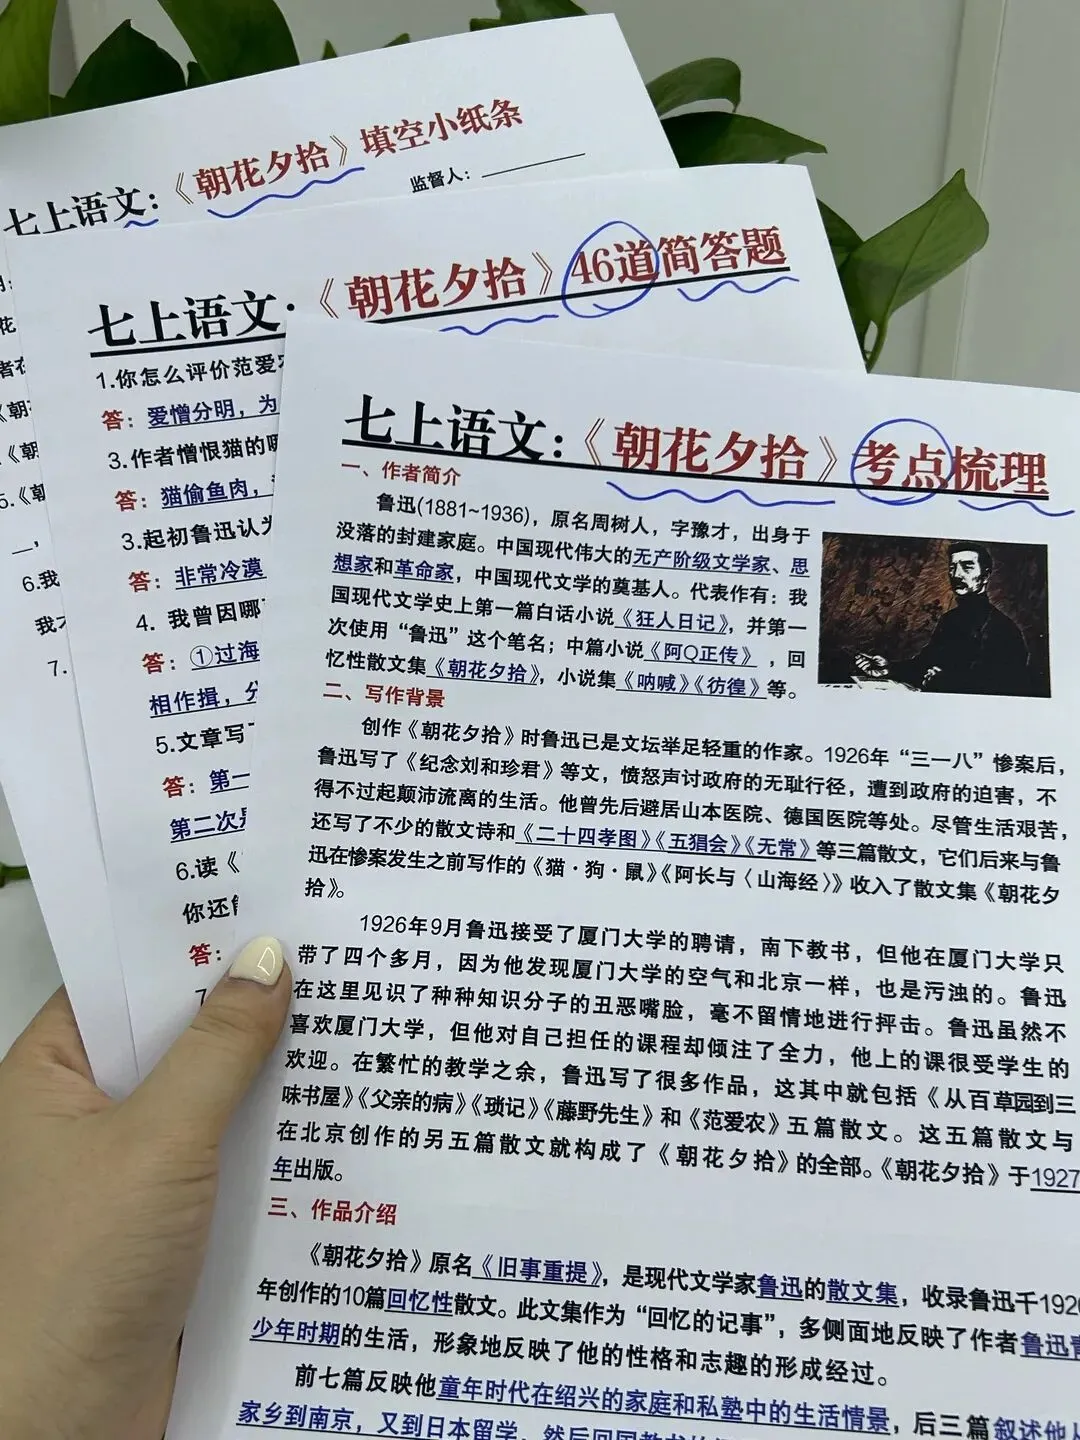 七上语文：《朝花夕拾》填空小纸条
监督人：
花
《朝
《朝
5.《朝
6.我
我
7.
七上语文：《朝花夕拾》46道简答题
1.你怎么评价范爱农
答：爱憎分明，为
3.作者憎恨猫的
答：猫偷鱼肉，
3.起初鲁迅认为
答：非常冷漠
4. 我曾因哪
答：①过海
相作揖，分
5.文章写了
答：第一
第二次是
6.读《
你还能
答：
7
七上语文：《朝花夕拾》考点梳理
一、作者简介
鲁迅(1881~1936)，原名周树人，字豫才，出身于
没落的封建家庭。中国现代伟大的无产阶级文学家、思
想家和革命家，中国现代文学的奠基人。代表作有：我
国现代文学史上第一篇白话小说《狂人日记》，并第一
次使用“鲁迅”这个笔名；中篇小说《阿Q正传》，回
忆性散文集《朝花夕拾》，小说集《呐喊》《彷徨》等。
二、写作背景
创作《朝花夕拾》时鲁迅已是文坛举足轻重的作家。1926年“三一八”惨案后，
鲁迅写了《纪念刘和珍君》等文，愤怒声讨政府的无耻行径，遭到政府的迫害，不
得不过起颠沛流离的生活。他曾先后避居山本医院、德国医院等处。尽管生活艰苦，
还写了不少的散文诗和《二十四孝图》《五猖会》《无常》等三篇散文，它们后来与鲁
迅在惨案发生之前写作的《猫·狗·鼠》《阿长与〈山海经〉》收入了散文集《朝花夕
拾》。
1926年9月鲁迅接受了厦门大学的聘请，南下教书，但他在厦门大学只
带了四个多月，因为他发现厦门大学的空气和北京一样，也是污浊的。鲁迅
在这里见识了种种知识分子的丑恶嘴脸，毫不留情地进行抨击。鲁迅虽然不
喜欢厦门大学，但他对自己担任的课程却倾注了全力，他上的课很受学生的
欢迎。在繁忙的教学之余，鲁迅写了很多作品，这其中就包括《从百草园到三
味书屋》《父亲的病》《琐记》《藤野先生》和《范爱农》五篇散文。这五篇散文与
在北京创作的另五篇散文就构成了《朝花夕拾》的全部。《朝花夕拾》于1927
年出版。
三、作品介绍
《朝花夕拾》原名《旧事重提》，是现代文学家鲁迅的散文集，收录鲁迅于192
年创作的10篇回忆性散文。此文集作为“回忆的记事”，多侧面地反映了作者鲁迅青
少年时期的生活，形象地反映了他的性格和志趣的形成经过。
前七篇反映他童年时代在绍兴的家庭和私塾中的生活情景，后三篇叙述他从
家乡到南京，又到日本留学，然后回国教书的